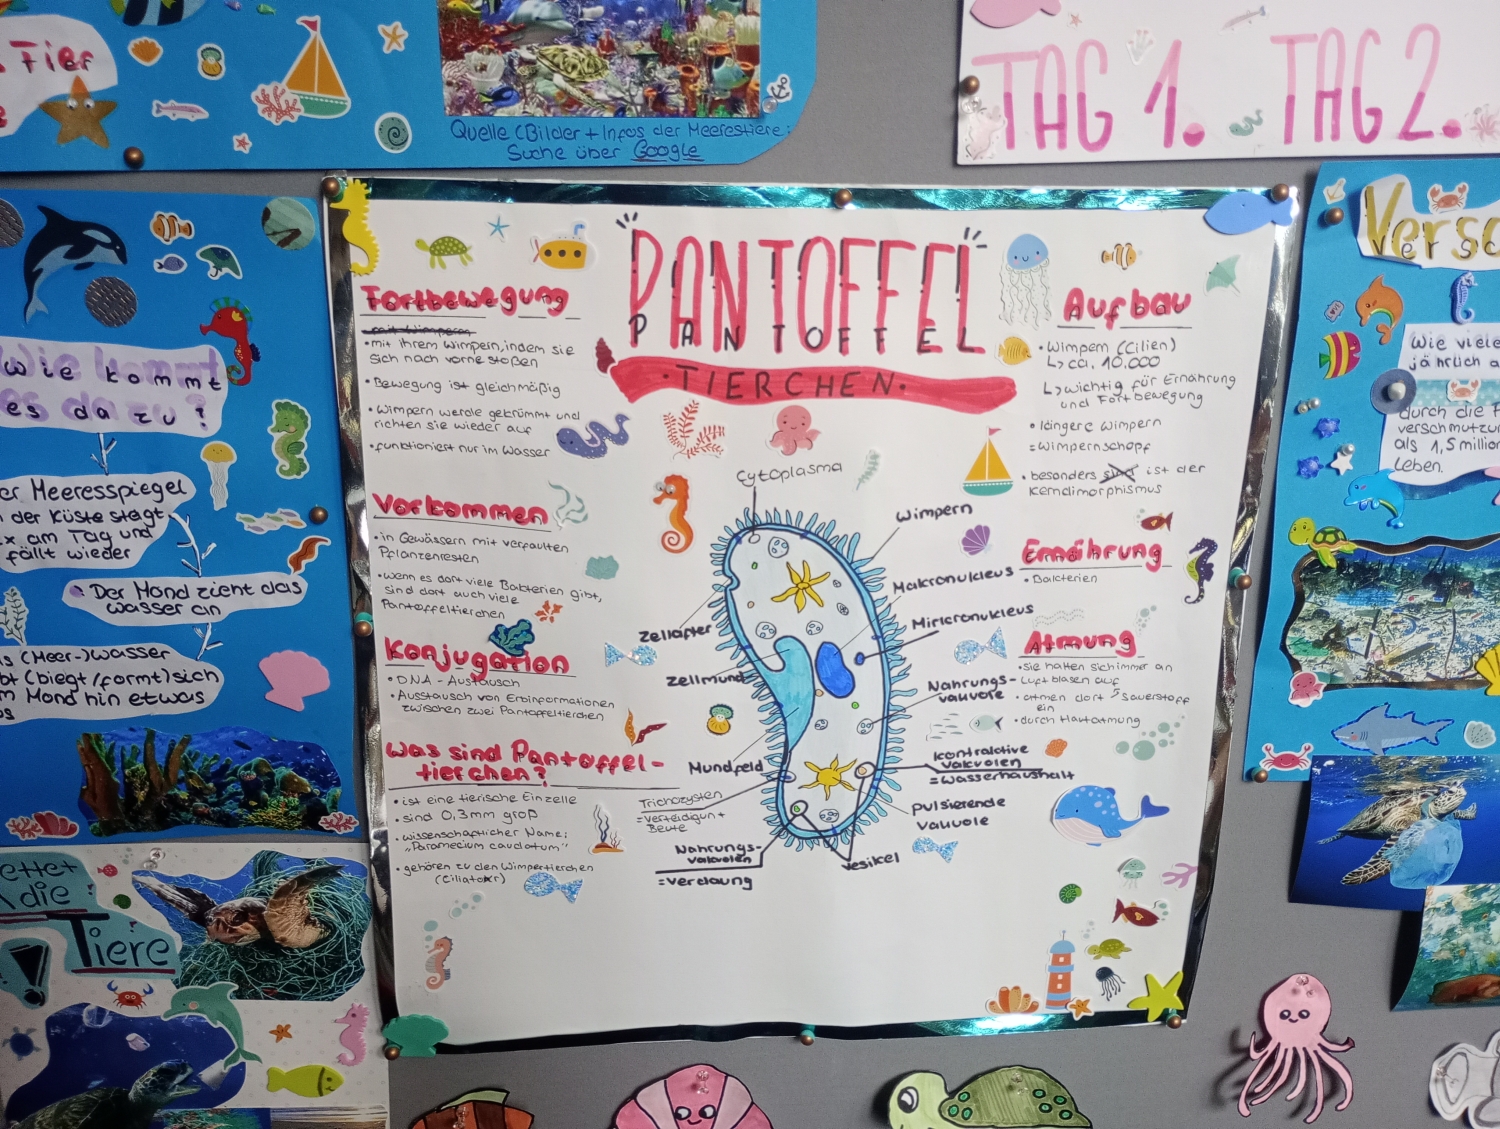 Tier
Quelle (Bilder + Infos der Meerestiere:
Suche über Google
TAG 1. TAG 2.
Wie kommt
es dazu?
er Meeresspiegel
der Küste steigt
x am Tag und
fällt wieder
Der Mond zieht das
wasser an
s (Meer-)wasser
bt (biegt/formt) sich
m Mond hin etwas
die
Tiere
PANTOFFEL
PANTOFFEL
TIERCHEN
Fortbewegung
mit Wimpern
• mit ihrem Wimpern, indem sie
sich nach vorne stoßen
• Bewegung ist gleichmäßig
• Wimpern werde gekrümmt und
richten sie wieder auf
• funktioniert nur im Wasser
Vorkommen
• in Gewässern mit verfaulten
Pflanzenresten
• wenn es dort viele Bakterien gibt,
sind dort auch viele
Pantoffeltierchen
Konjugation
• DNA - Austausch
• Ausstausch von Erbinformationen
zwischen zwei Pantoffeltierchen
Was sind Pantoffel-
tierchen?
• ist eine tierische Einzelle
• sind 0,3mm groß
• wissenschaftlicher Name:
"Paramecium caudatum"
• gehören zu den Wimpertierchen
Cytoplasma
Wimpern
Makronukleus
Mirkronukleus
Zellafter
Zellmund
Nahrungs-
vakuole
Mundfeld
kontraktive
Vakuolen
= Wasserhaushalt
Trichozysten
= Verteidigun +
Beute
pulsierende
Vakuole
Nahrungs-
vakuolen
= Verdaung
Vesikel
Aufbau
• Wimpern (Cilien)
↳ ca. 10.000
↳ wichtig für Ernährung
und Fortbewegung
• längere Wimpern
= Wimpernschopf
• besonders sind ist der
Kerndimorphismus
Ernährung
• Bakterien
Atmung
• sie halten sich immer an
Luftblasen auf
• atmen dort Sauerstoff
ein
• durch Hautatmung
Wie viele
jährlich a
durch die
verschmutzu
als 1,5 million
Leben.